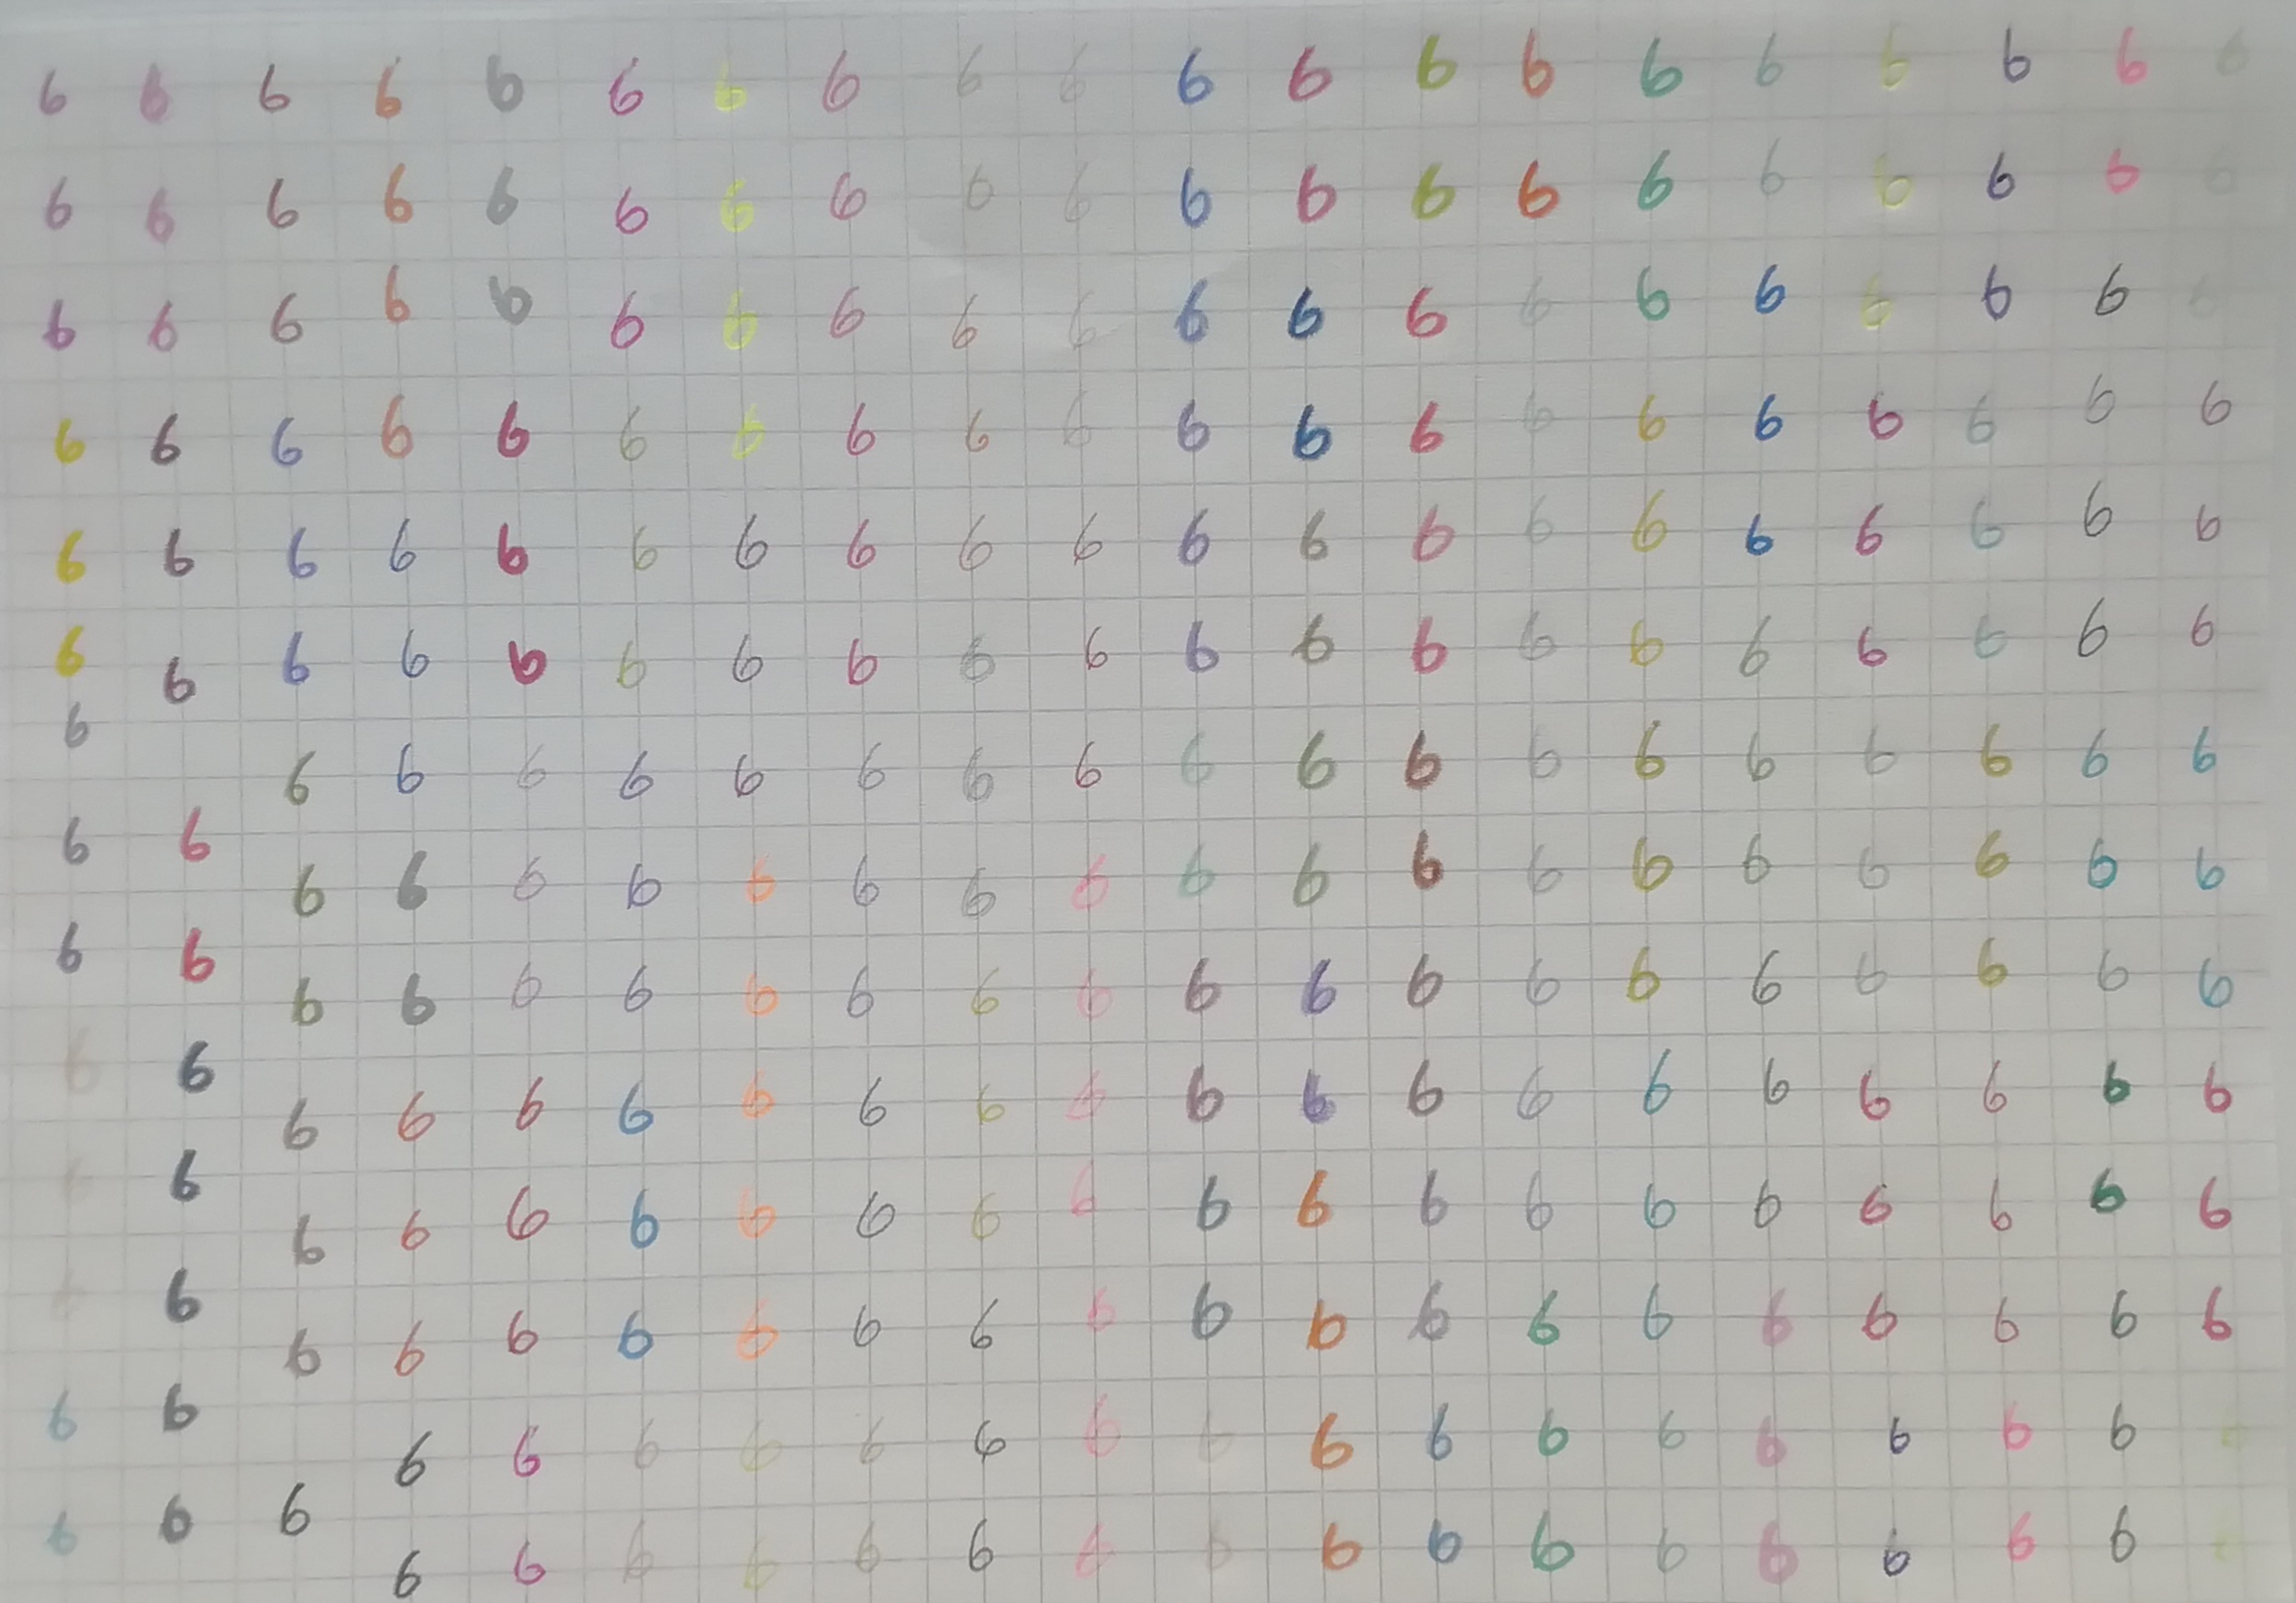 6 6 6 6 6 6 6 6 6 6 6 6 6 6 6 6 6 6 6 6
6 6 6 6 6 6 6 6 6 6 6 6 6 6 6 6 6 6 6 6
6 6 6 6 6 6 6 6 6 6 6 6 6 6 6 6 6 6 6 6
6 6 6 6 6 6 6 6 6 6 6 6 6 6 6 6 6 6 6 6
6 6 6 6 6 6 6 6 6 6 6 6 6 6 6 6 6 6 6 6
6 6 6 6 6 6 6 6 6 6 6 6 6 6 6 6 6 6 6 6
6 6 6 6 6 6 6 6 6 6 6 6 6 6 6 6 6 6 6
6 6 6 6 6 6 6 6 6 6 6 6 6 6 6 6 6 6 6 6
6 6 6 6 6 6 6 6 6 6 6 6 6 6 6 6 6 6 6 6
6 6 6 6 6 6 6 6 6 6 6 6 6 6 6 6 6 6 6 6
6 6 6 6 6 6 6 6 6 6 6 6 6 6 6 6 6 6 6 6
6 6 6 6 6 6 6 6 6 6 6 6 6 6 6 6 6 6 6 6
6 6 6 6 6 6 6 6 6 6 6 6 6 6 6 6 6 6 6
6 6 6 6 6 6 6 6 6 6 6 6 6 6 6 6 6 6 6 6